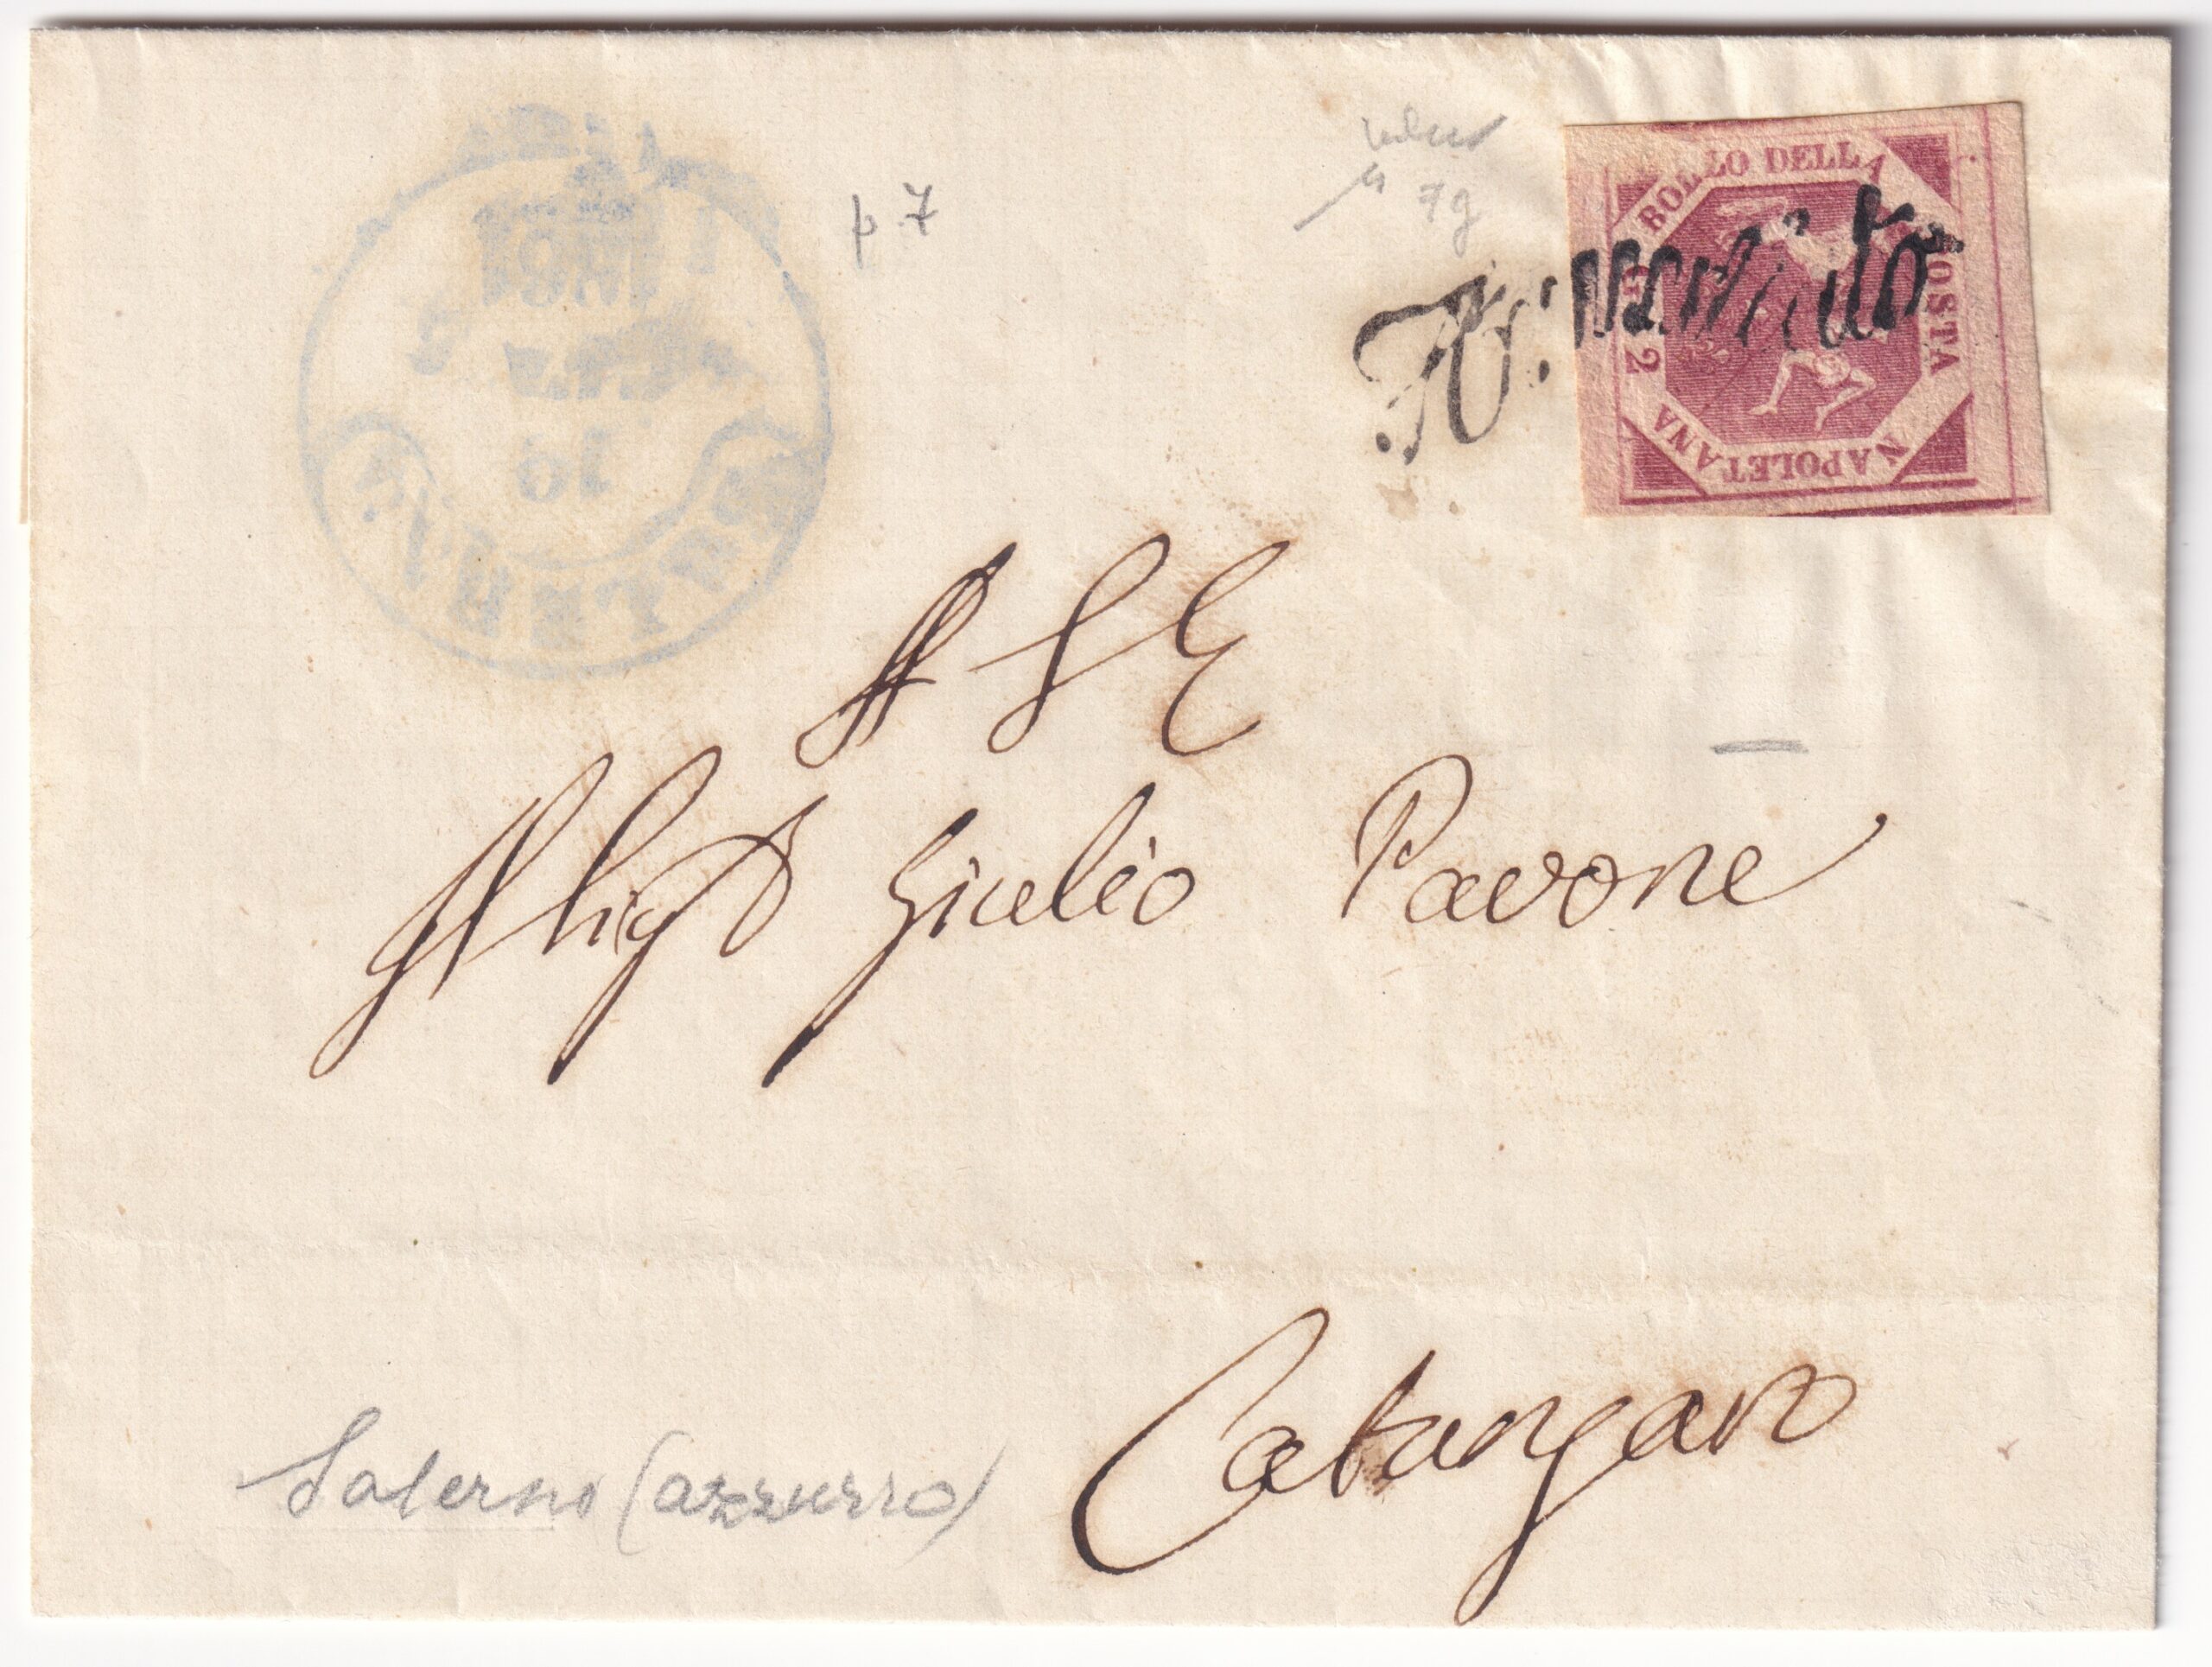 p. 7
7g
BOLLO DELLA
POSTA
NAPOLETANA
G. 2
Annullato
A S E
Giulio Pavone
Catanzaro
Salerno (azzurro)